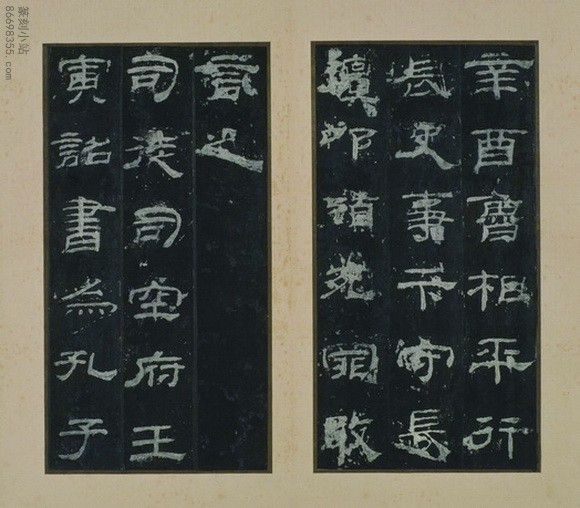 辛酉魯相平行
長史事卞守長
擅叩頭死罪敢
言之
司徒司空府壬
寅詔書為孔子
篆刻小站
86698355.com